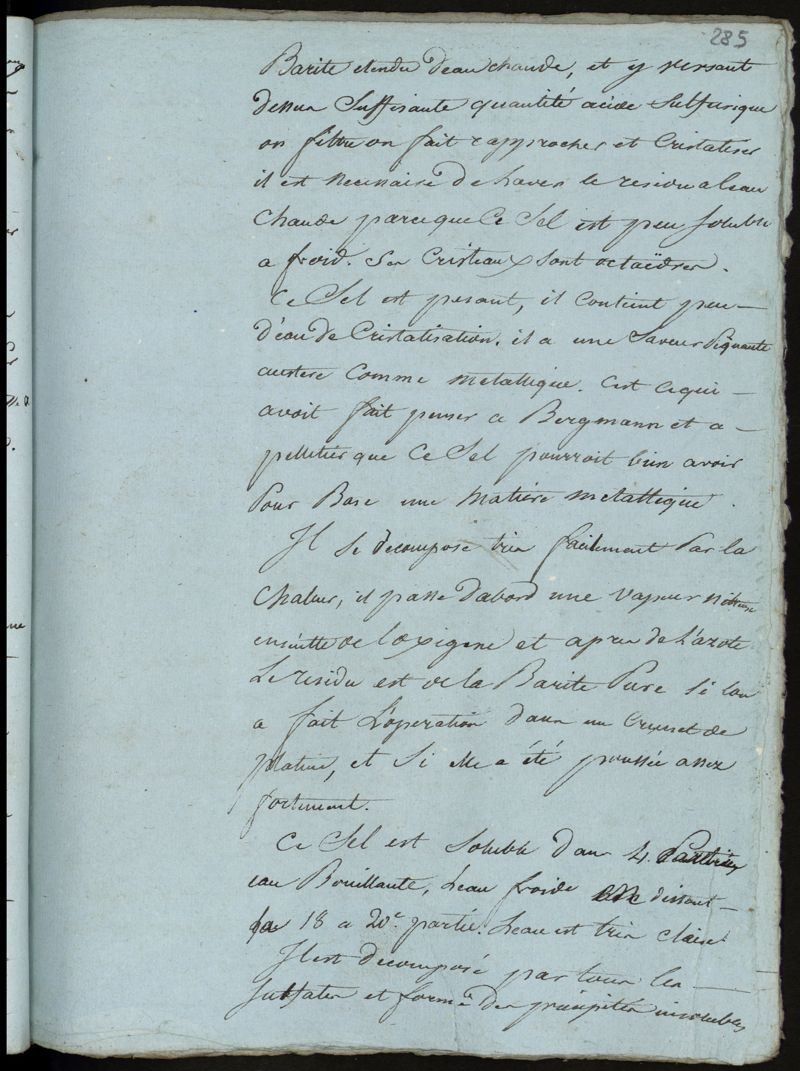 285
Barite etendu d'eau chaude, et y versant
dessus suffisante quantité acide sulfurique
on filtre on fait rapprocher et Cristaliser
il est necessaire de laver le residu a l'eau
chaude parceque Ce Sel est peu soluble
a froid. Ses Cristeaux sont octaëdres.
Ce Sel est pesant, il Contient peu —
d'eau de Cristalisation. il a une Saveur Piquante
austere Comme metallique. C'est Cequi —
avoit fait penser a Bergmann et a —
pelletier que Ce Sel pourroit bien avoir
Pour Base une Matière metallique
Il se decompose tres facilement Par la
Chaleur, il passe d'abord une Vapeur nitreuse
ensuitte de l'oxigene et apres de l'azote
Le residu est de la Barite Pure Si lon
a fait L'operation dans un Creuset de
platine, et Si elle a été poussée assez
fortement.
Ce Sel est Soluble dans 4. Parties
eau Bouillante, L'eau froide en dissout —
la 18 a 20e. partie. L'eau est très claire
Il est decomposé par tous les —
Sulfates et forme des precipités insolubles